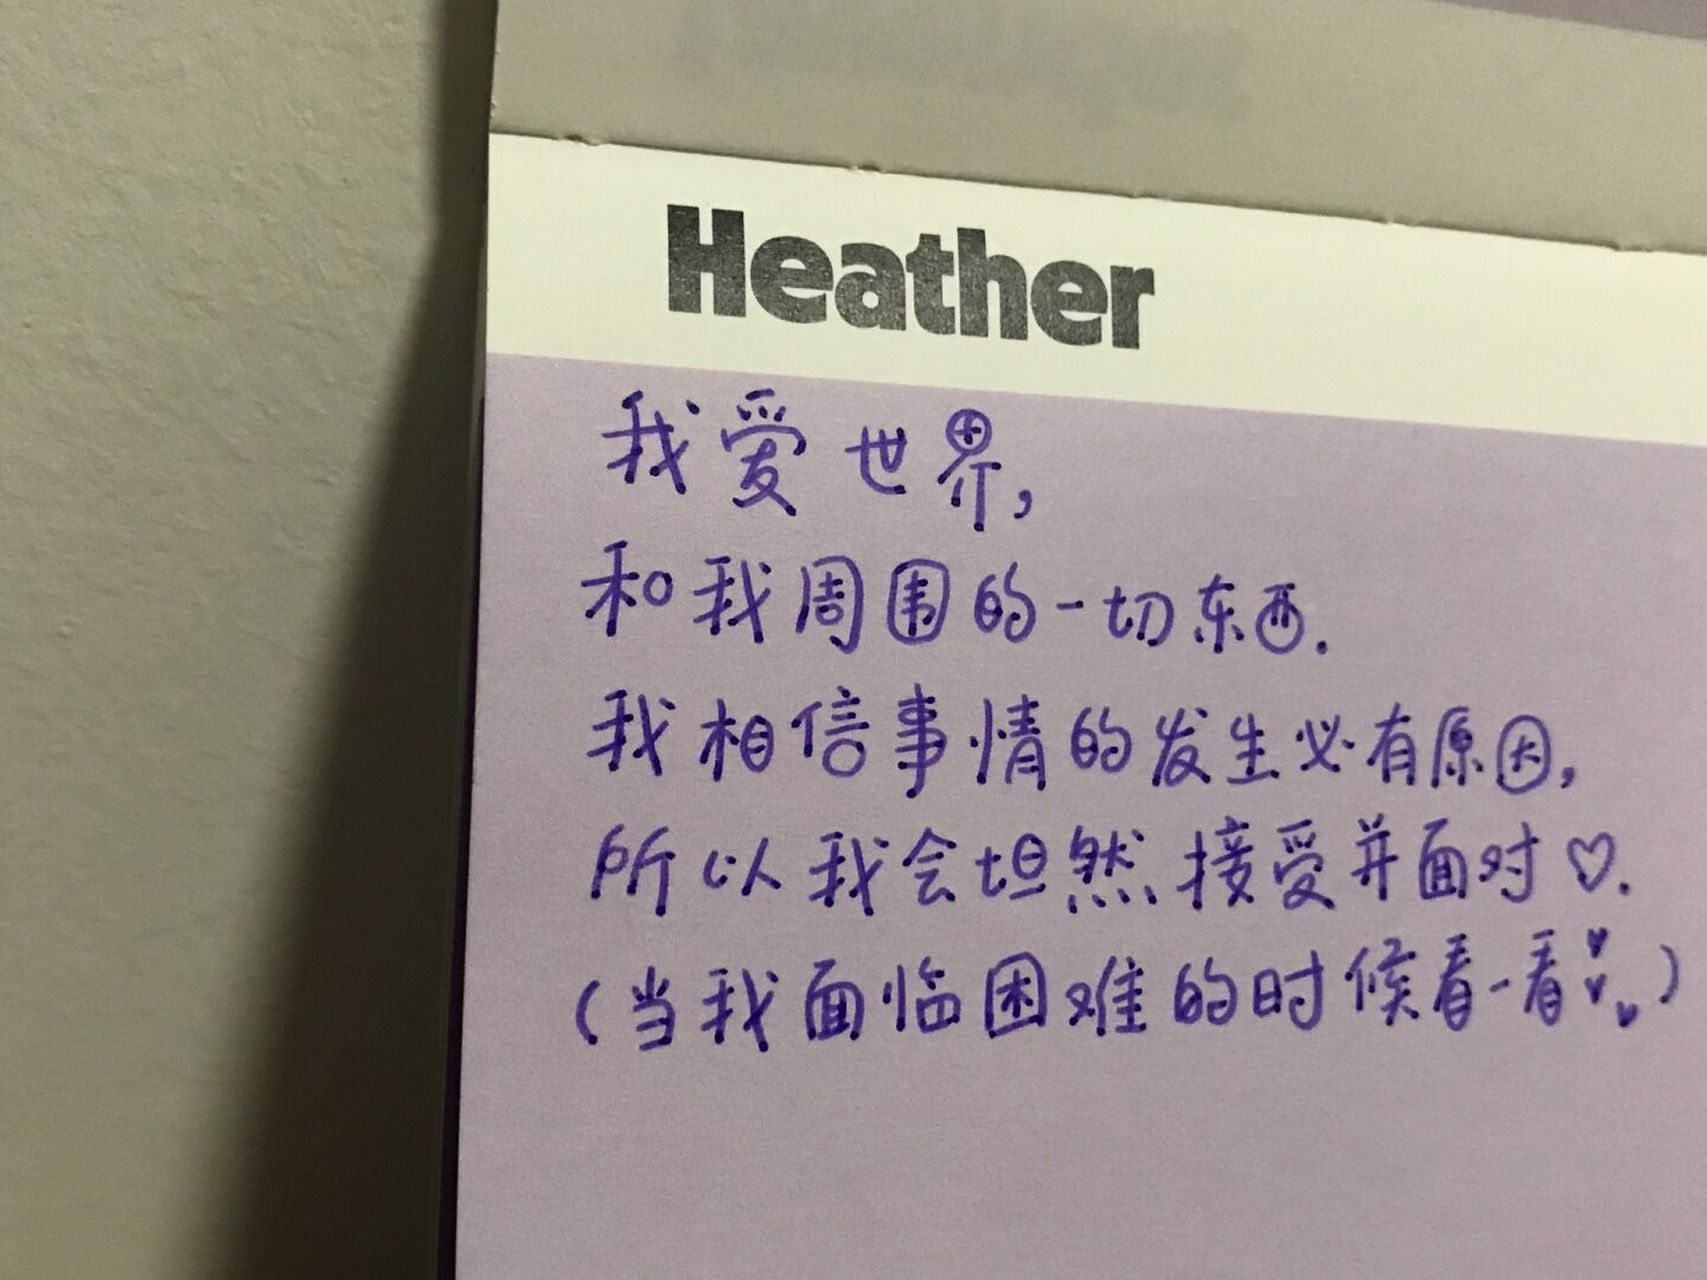 Heather
我爱世界,
和我周围的一切东西.
我相信事情的发生必有原因,
所以我会坦然接受并面对♡.
(当我面临困难的时候看一看♥♥♥)